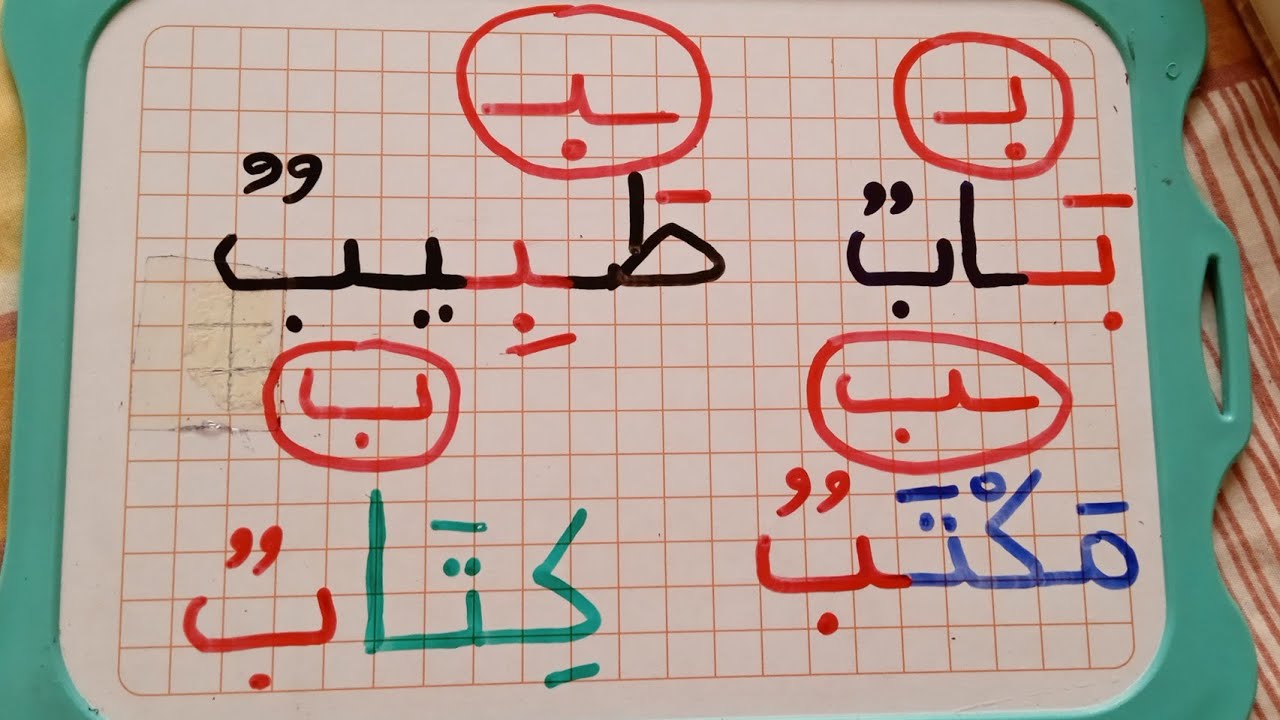 بـ ـبـ
بَابٌ طَبِيبٌ
ـب ب
مَكْتَبٌ كِتَابٌ